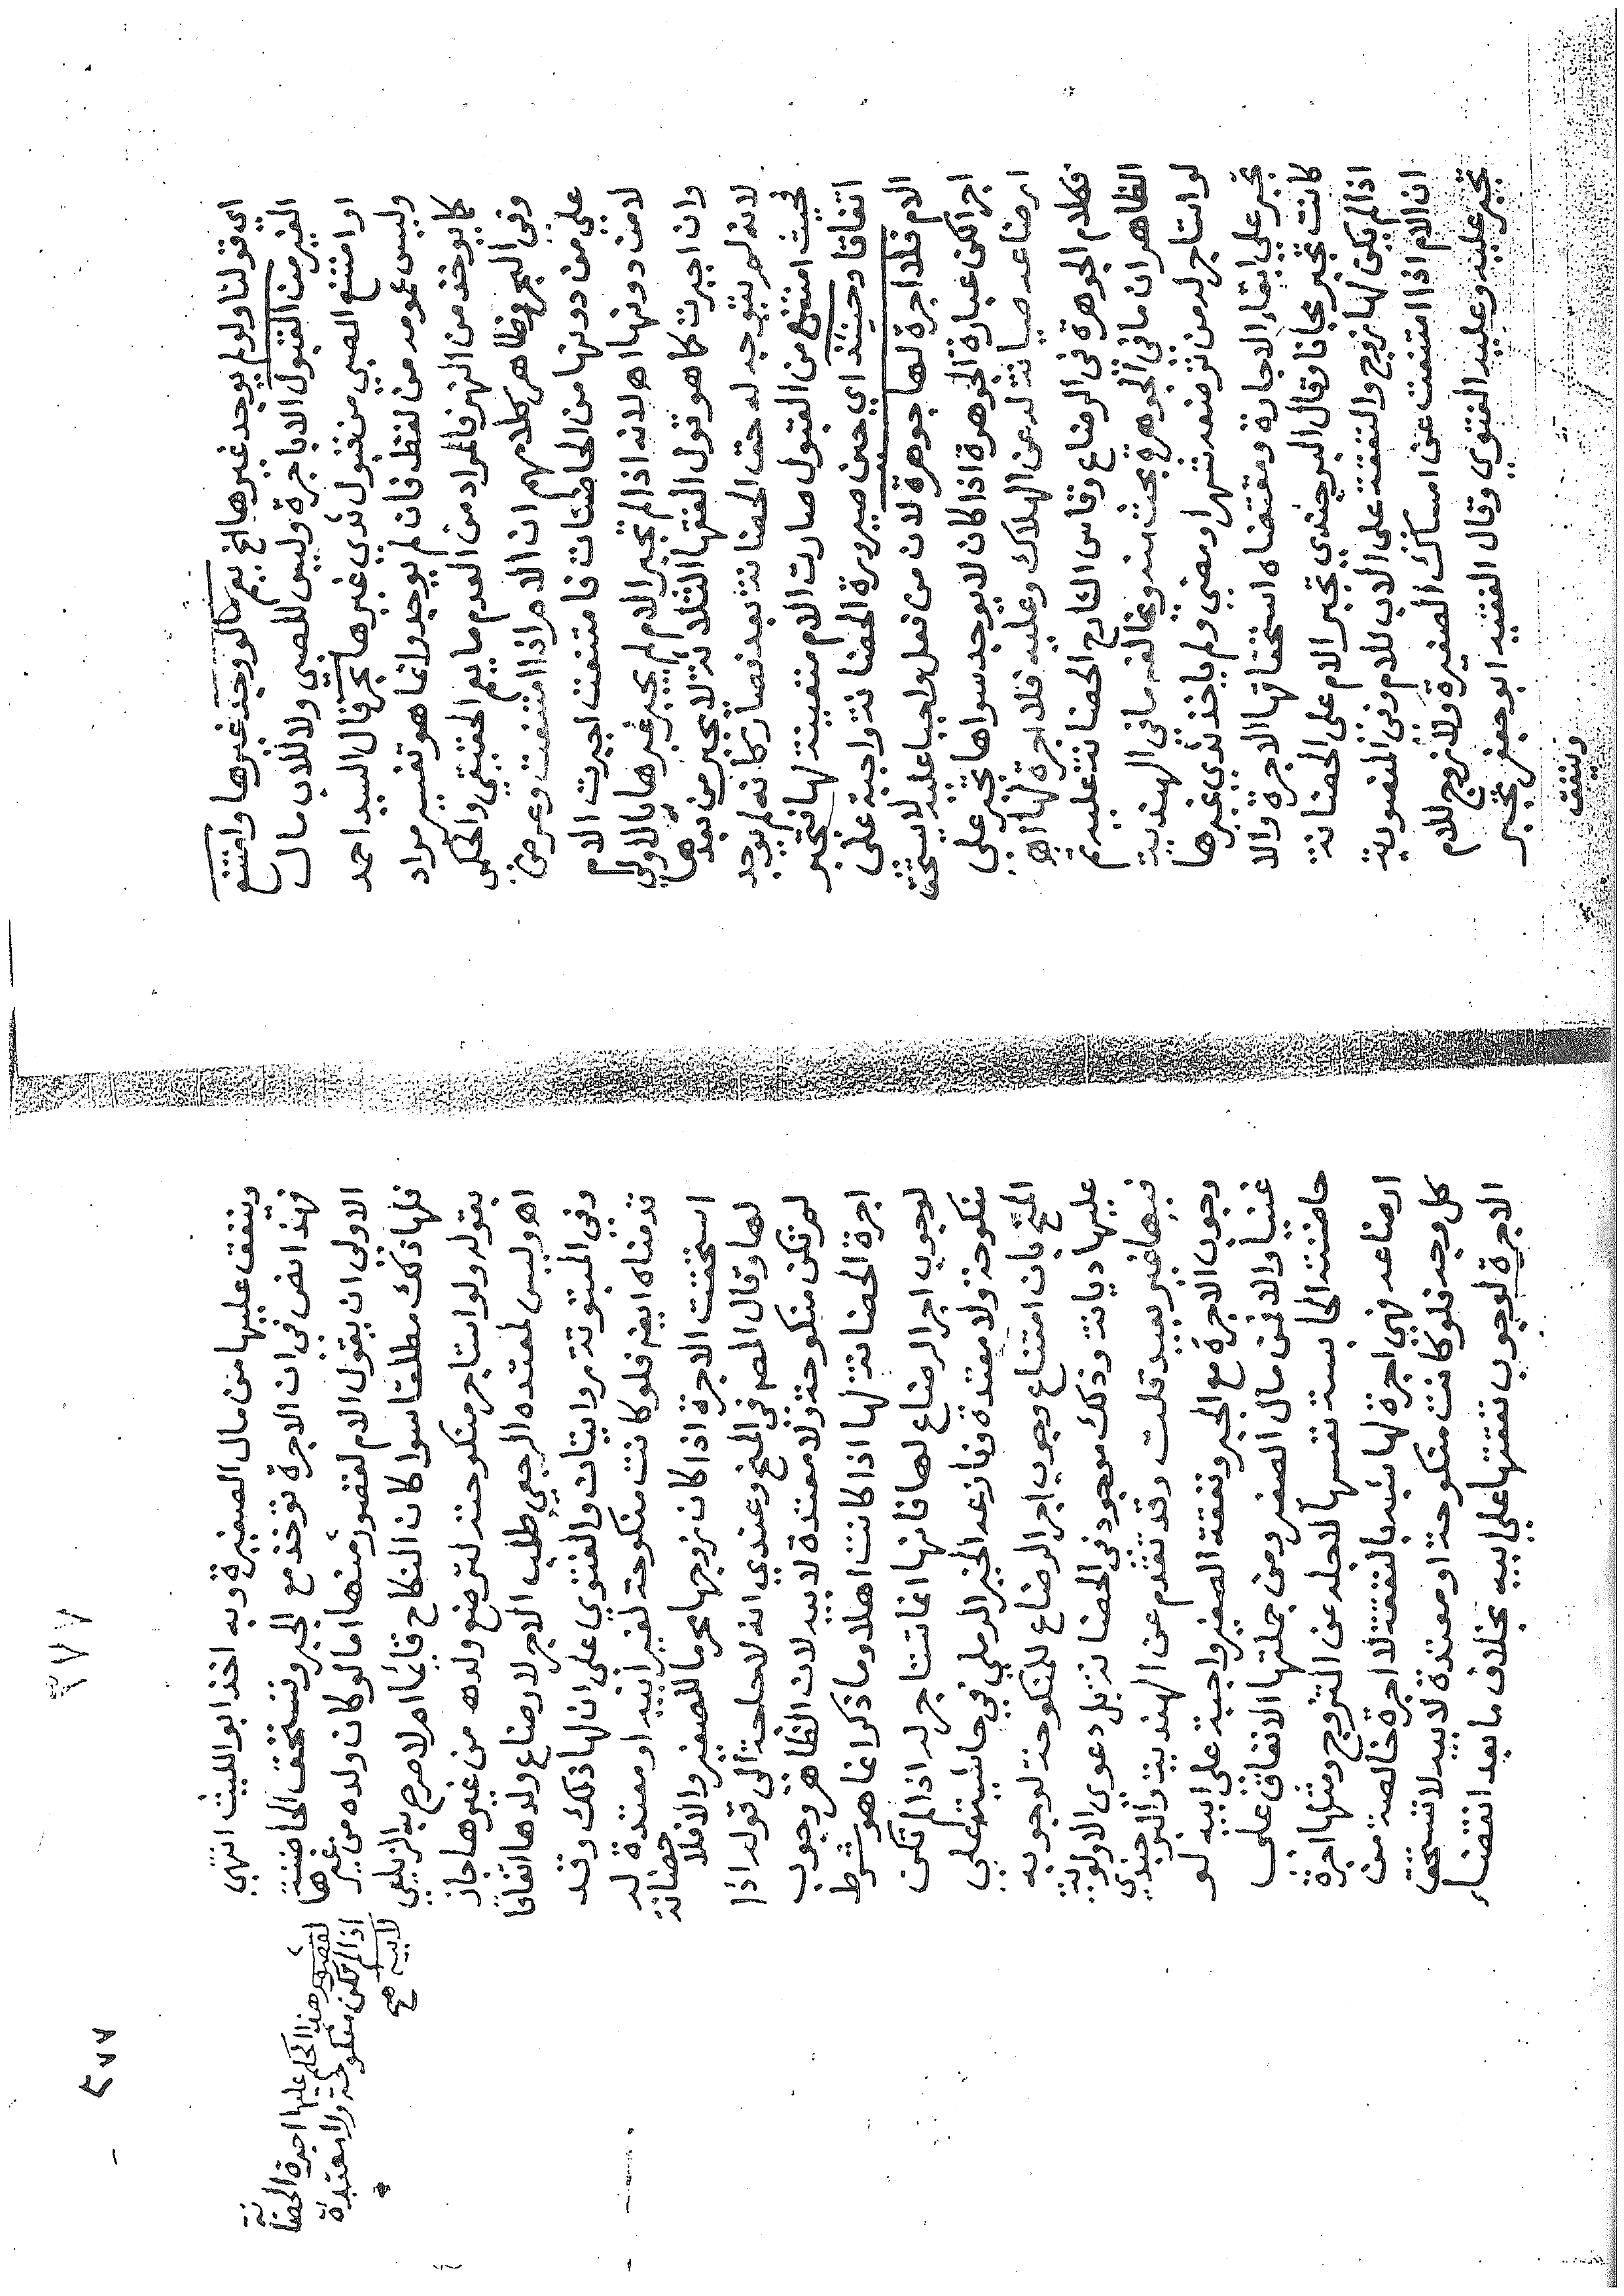 اى قولنا ولو لم يوجد غيرها الخ يعم مالو وجد غيرها وامتنع
الغير من القبول الا باجرة وليس للصبي ولا للاب مال
او امتنع الصبي من قبول ثدي غيرها بحر قال السيد احمد
وليس عمومه من لفظ فان لم يوجد وانما هو تفسير مراد
كما يوخذ من النهر فالمراد من العدم ما يعم الحقيقي والحكمي
وفى البحر وظاهر كلامهم ان الام اذا امتنعت وعرض
على من دونها من الحاضنات فامتنعت اجبرت الام
لا من دونها اه لانه اذا لم تجبر الام لم يجبر غيرها بالاولى
وان اجبرت كما هو قول الفقها الثلاثة لا يجبر من بعدها
لانه لم يتوجه له حق الحضانة بعد فصار كانه لم يوجد
فحيث امتنع من القبول صارت الام متعينة لها فتجبر
اتفاقا وحينئذ اي حين صيرورة الحضانة واجبة على
الام فلا اجرة لها جوهرة لان من فعل واجبا عليه لا يستحق
اجرا لكن عبارة الجوهرة اذا كان لا يوجد سواها تجبر على
ارضاعه صيانة له عن الهلاك وعليه فلا اجرة لها اه
فكلام الجوهرة فى الرضاع وقاس الشارح الحضانة عليه ثم
الظاهر ان ما فى الجوهرة بحث منه ويخالفه ما فى الهندية
لو استاجر له من ترضعه شهرا ومضى ولم ياخذ ثدي غيرها
تجبر على ابقاء الاجارة ومقتضاه استحقاقها الاجرة والا
كانت تجبر مجانا وقال البرجندي تجبر الام على الحضانة
اذا لم يكن لها زوج والنفقة على الاب للام وفى المنصورية
ان الام اذا امتنعت عن امساك الصغيرة ولا زوج للام
تجبر عليه وعليه الفتوى وقال الفقيه ابو جعفر تجبر
وينفق
٢٧٧
وينفق عليها من مال الصغيرة وبه اخذ ابو الليث انتهى
فهذا نص فى ان الاجرة توخذ مع الجبر وتستحق الحاضنة
الاولى ان يقول الام لقصور منها اما لو كان ولده من غيرها
فلها ذلك مطلقا سوا كان النكاح قايما ام لا صرح به الزيلعي
بقوله ولو استاجر منكوحته لترضع ولده من غيرها جاز
اه وليس لمعتده الرجعي طلب الاجر لارضاع ولدها اتفاقا
وفى المبتوتة روايتان والفتوى على ان لها ذلك وقد
قدمناه ايضا فلو كانت منكوحة لغير ابيه او معتدة له
استحقت الاجرة اذا كان زوجها محرما للصغير والا فلا حضانة
لها وقال المصـ في المنح وعندي انه لا حاجة الى قوله اذا
لم تكن منكوحة ولا معتدة لابيه لان الظاهر وجوب
اجرة الحضانة لها اذا كانت اهلا وما ذكر انما هو شرط
لوجوب اجر الرضاع لها فانها انما تستاجر له اذا لم تكن
منكوحة ولا معتدة ونازعه الخير الرملي في حاشيته على
المنح بان امتناع وجوب اجر الرضاع للمنكوحة لوجوبه
عليها ديانة وذلك موجود فى الحضانة بل دعوى الاولوية
فيها غير بعيد قلت وقد تقدم عن الهندية والبرجندي
وجوب الاجرة مع الجبر ونفقة الصغير واجبة على ابيه لو
غنيا والا فمن مال الصغير ومن جملتها الانفاق على
حاضنته الحابسة نفسها لاجله عن التزوج ومثلها اجرة
ارضاعه فهى اجرة لها شبه بالنفقة لا اجرة خالصة من
كل وجه فلو كانت منكوحة او معتدة لابيه لا تستحق
الاجرة لوجوب نفقتها على ابيه بخلاف ما بعد انقضاء
لقصور هذا الحكم عليها اجرة الحضانة
اذا لم تكن منكوحة ولا معتدة
لابيه صح
٢٧٧